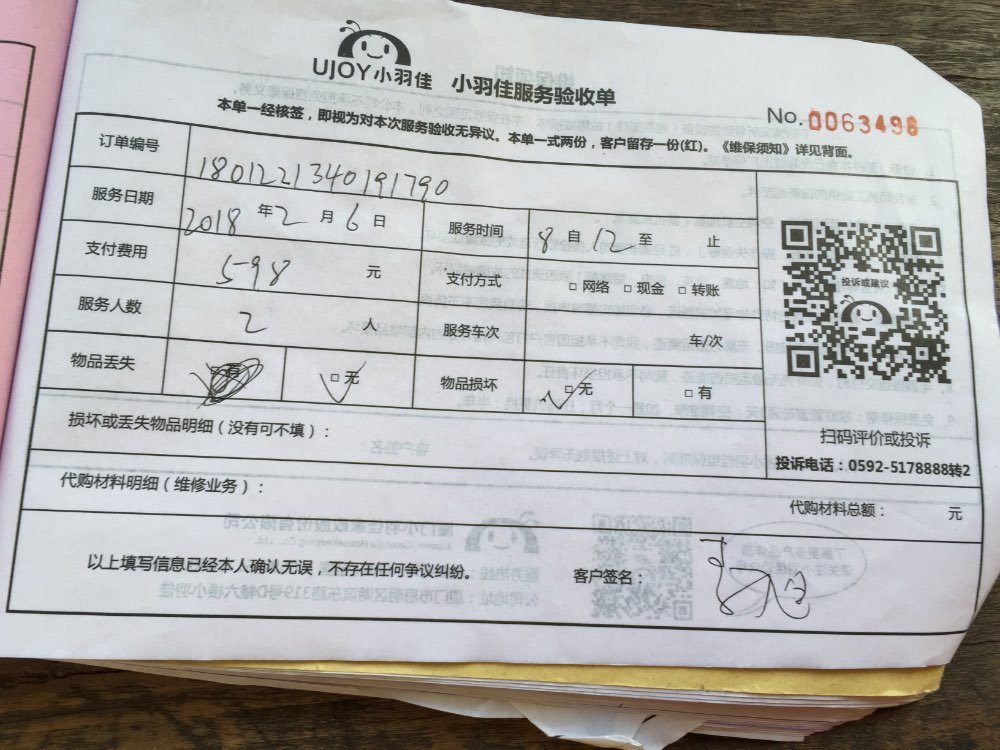 UJOY小羽佳 小羽佳服务验收单
No.0063498
本单一经核签，即视为对本次服务验收无异议。本单一式两份，客户留存一份(红)。《维保须知》详见背面。
订单编号 1801221340191790
服务日期 2018 年 2 月 6 日 服务时间 8 自 12 至 止
支付费用 598 元 支付方式 □ 网络 □ 现金 □ 转账
服务人数 2 人 服务车次 车/次
物品丢失 □ 有 □ 无 物品损坏 □ 无 □ 有
投诉或建议
扫码评价或投诉
投诉电话：0592-5178888转2
损坏或丢失物品明细（没有可不填）：
代购材料明细（维修业务）：
代购材料总额： 元
以上填写信息已经本人确认无误，不存在任何争议纠纷。 客户签名：